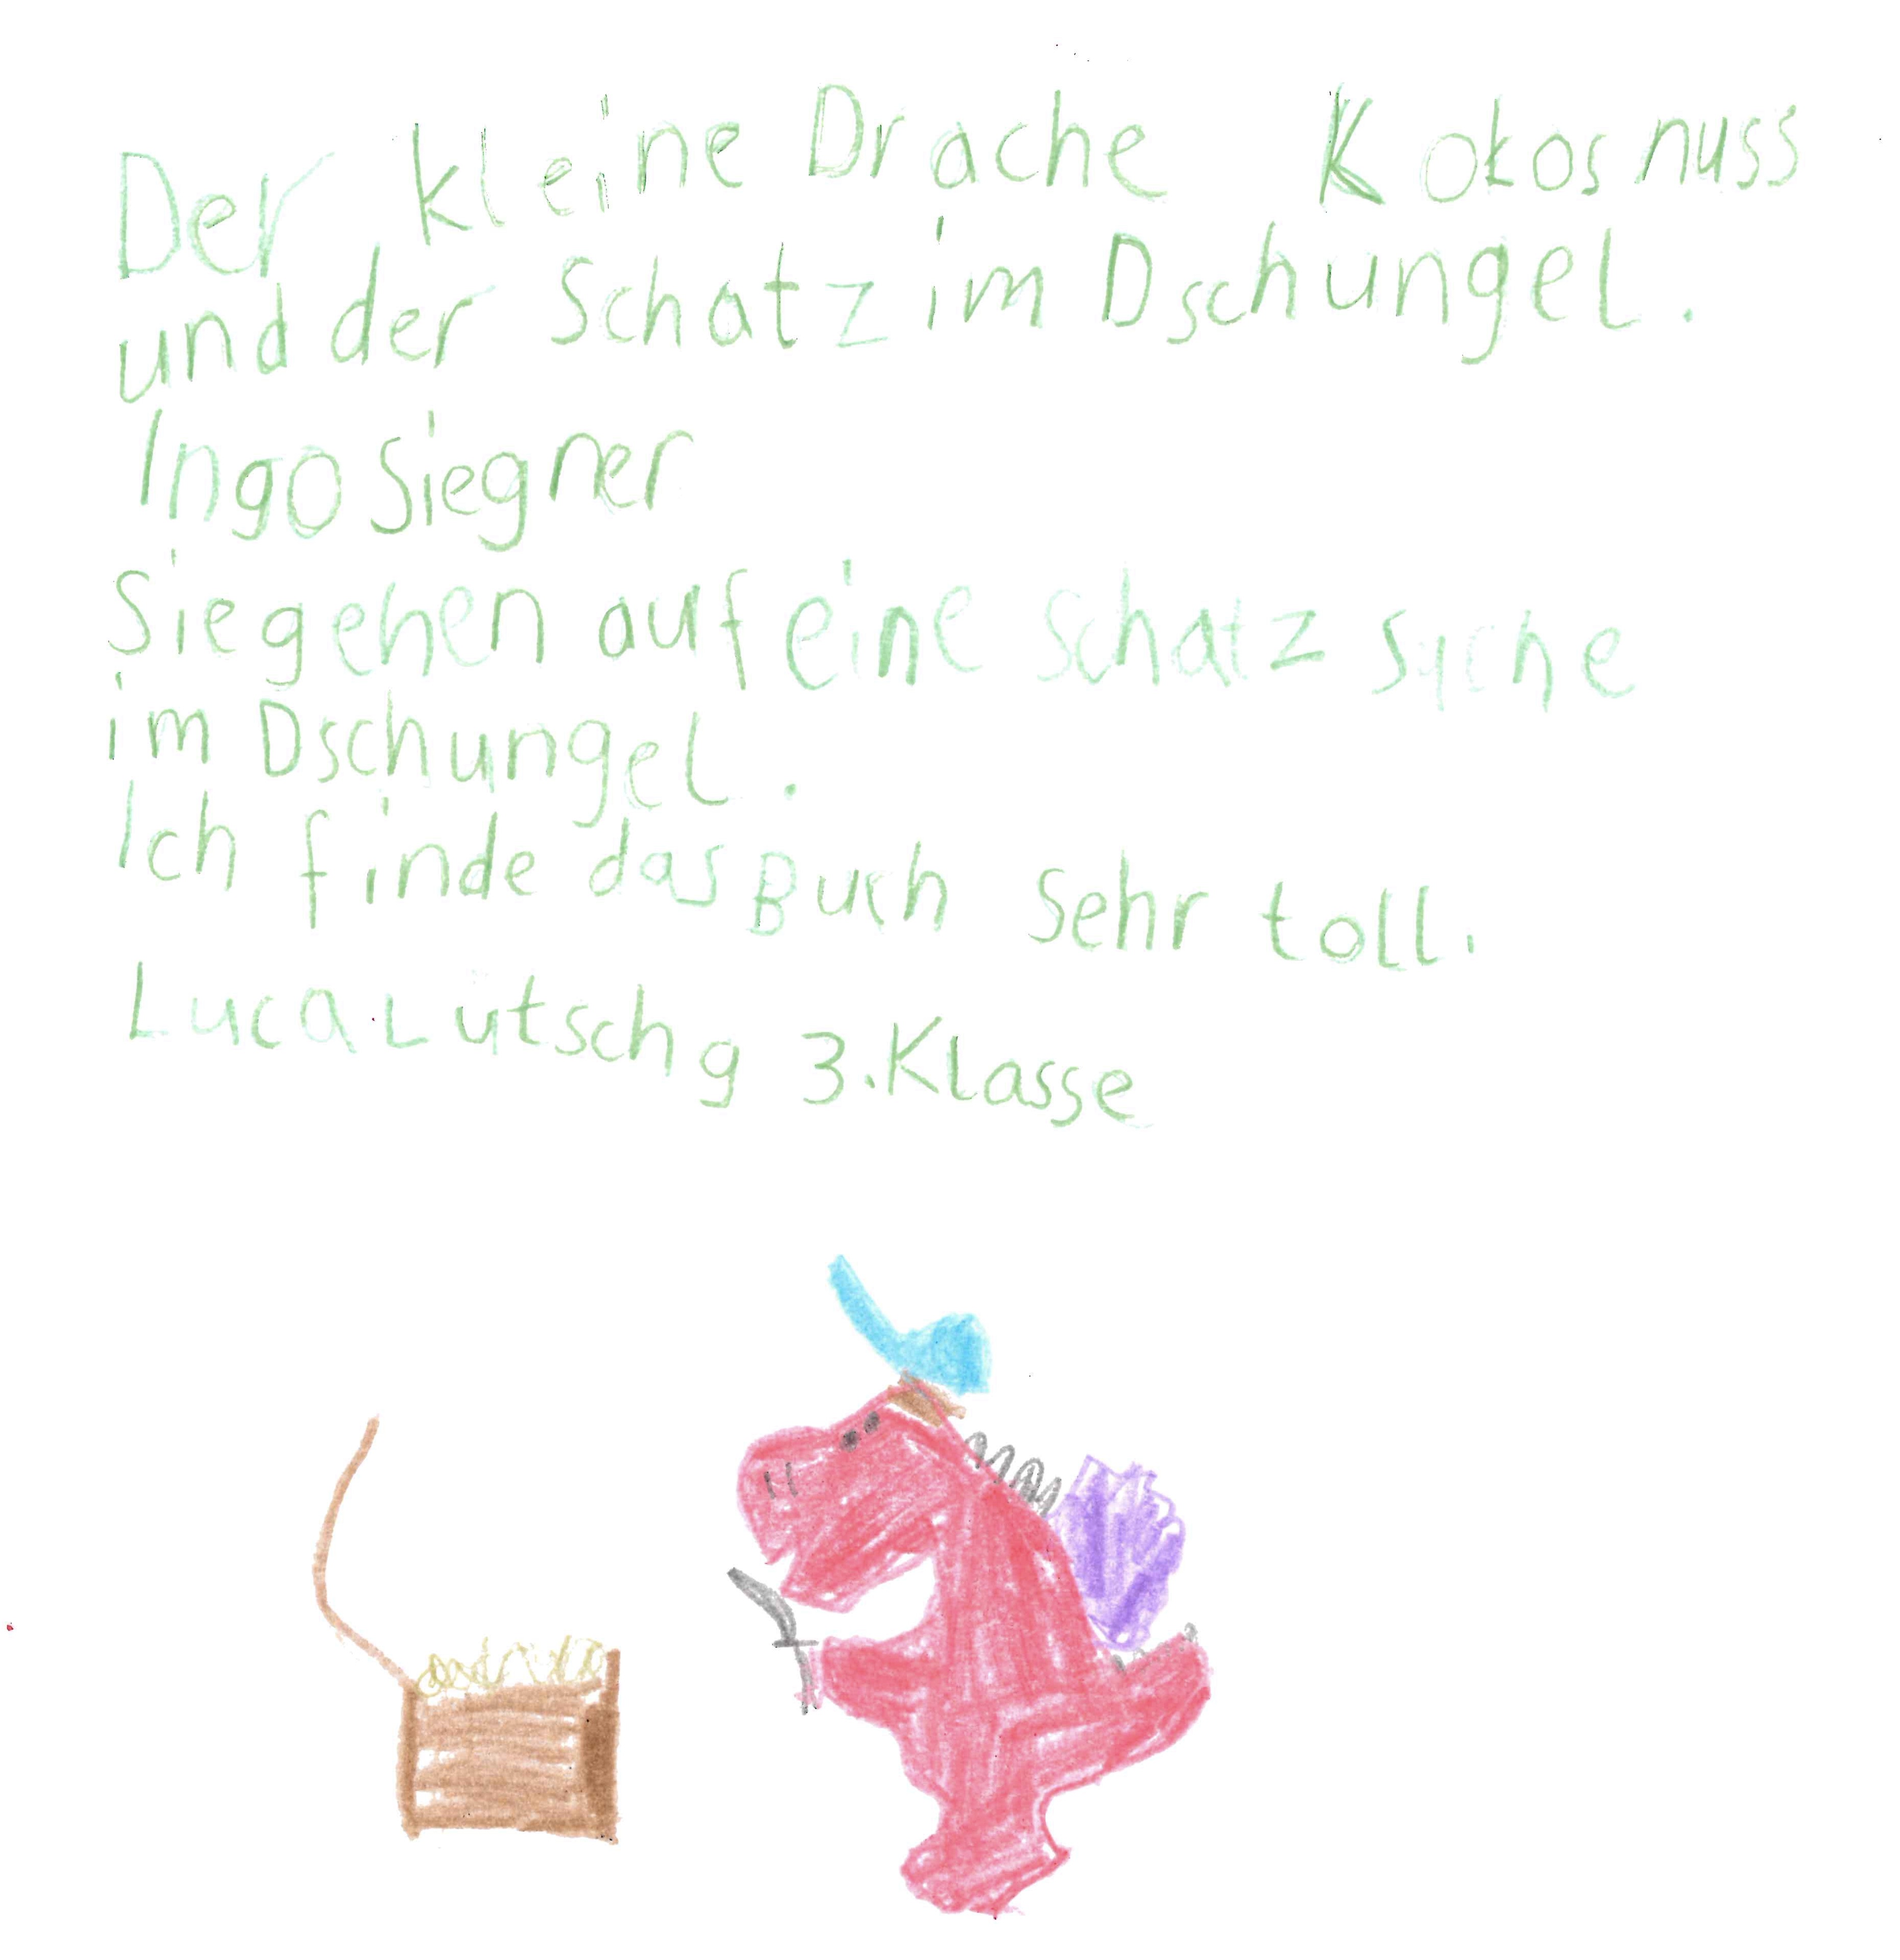 Der kleine Drache Kokosnuss
und der Schatz im Dschungel.
Ingo Siegner
Sie gehen auf eine schatz suche
im Dschungel.
Ich finde das Buch sehr toll.
Luca Lütschg 3. Klasse